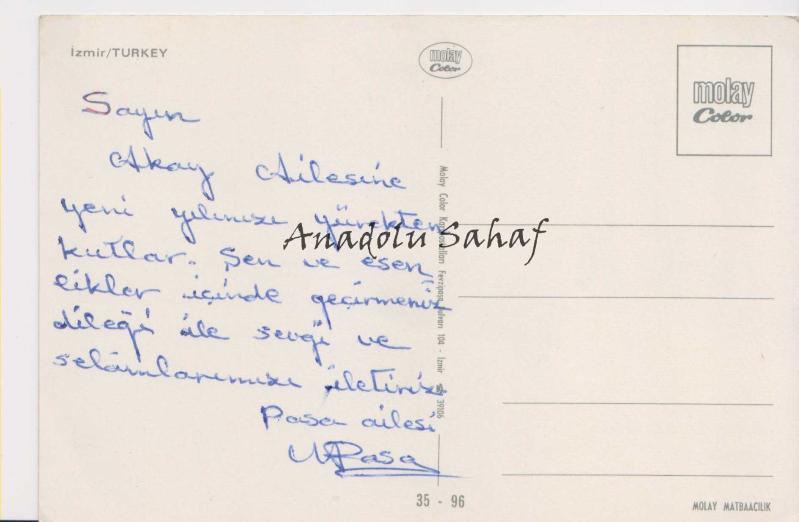 İzmir/TURKEY
molay
Color
molay
Color
Sayın
Akay Ailesine
yeni yılınızı yürekten
kutlar. Şen ve esen
likler içinde geçirmeniz
dileği ile sevgi ve
selâmlarımızı iletiriz
Pasa ailesi
Pasa
Anadolu Sahaf
Molay Color Fevzipaşa Bulvarı 104 - İzmir 39106
35 - 96
MOLAY MATBAACILIK